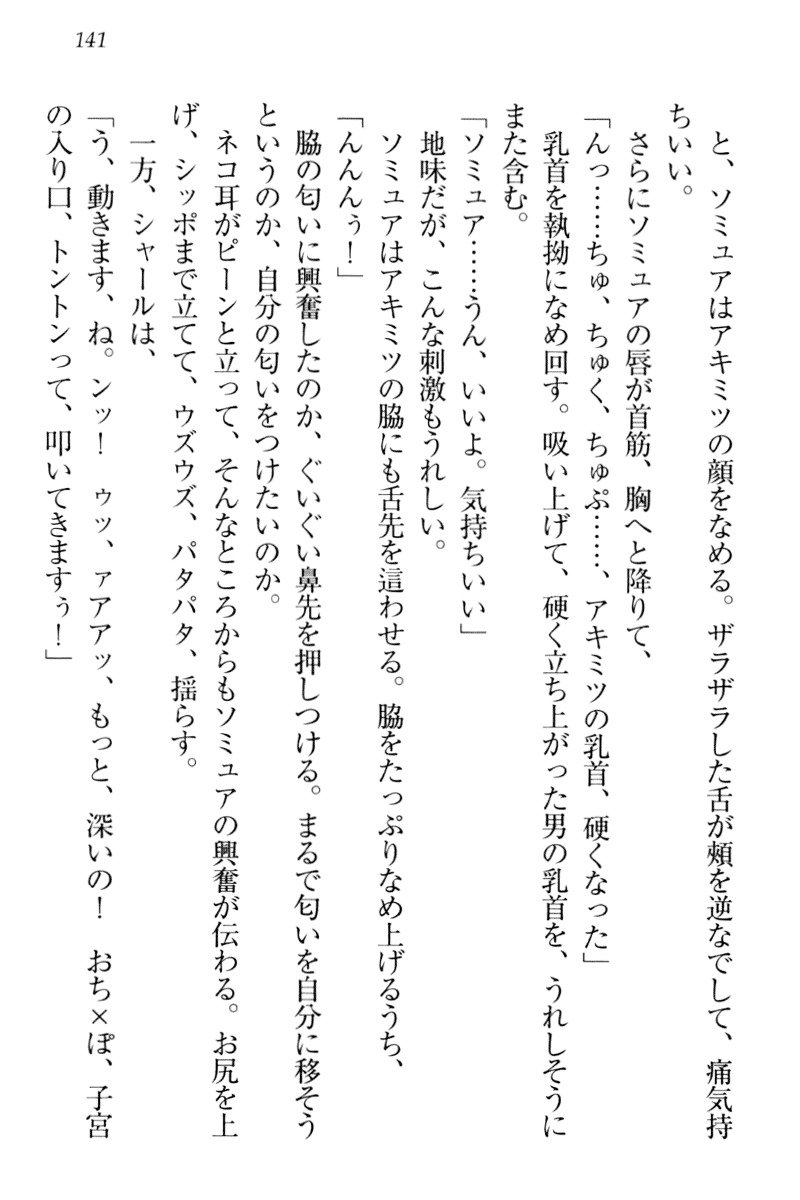 141
と、ソミュアはアキミツの顔をなめる。ザラザラした舌が頬を逆なでして、痛気持
ちいい。
さらにソミュアの唇が首筋、胸へと降りて、
「んっ……ちゅ、ちゅく、ちゅぷ……、アキミツの乳首、硬くなった」
乳首を執拗になめ回す。吸い上げて、硬く立ち上がった男の乳首を、うれしそうに
また含む。
「ソミュア……うん、いいよ。気持ちいい」
地味だが、こんな刺激もうれしい。
ソミュアはアキミツの脇にも舌先を這わせる。脇をたっぷりなめ上げるうち、
「んんんぅ！」
脇の匂いに興奮したのか、ぐいぐい鼻先を押しつける。まるで匂いを自分に移そう
というのか、自分の匂いをつけたいのか。
ネコ耳がピーンと立って、そんなところからもソミュアの興奮が伝わる。お尻を上
げ、シッポまで立てて、ウズウズ、パタパタ、揺らす。
一方、シャールは、
「う、動きます、ね。ンッ！　ゥッ、ァアアッ、もっと、深いの！　おち×ぽ、子宮
の入り口、トントンって、叩いてきますぅ！」